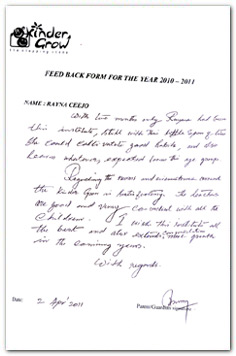 Kinder Grow
the stepping stone
FEED BACK FORM FOR THE YEAR 2010 – 2011
NAME : RAYNA CEEJO
With two months only Rayna had been
this institute, still with this little span of time
She could cultivate good habits, and also
learns whatever expected from the age group.
Regarding the and around
the Kinder Grow is satisfactory. The teachers
are good and very with all the
Children. I wish this institute all
the best and also extends
in the coming years.
With regards.
Date: 2 Apr' 2011
Parent/Guardian signature